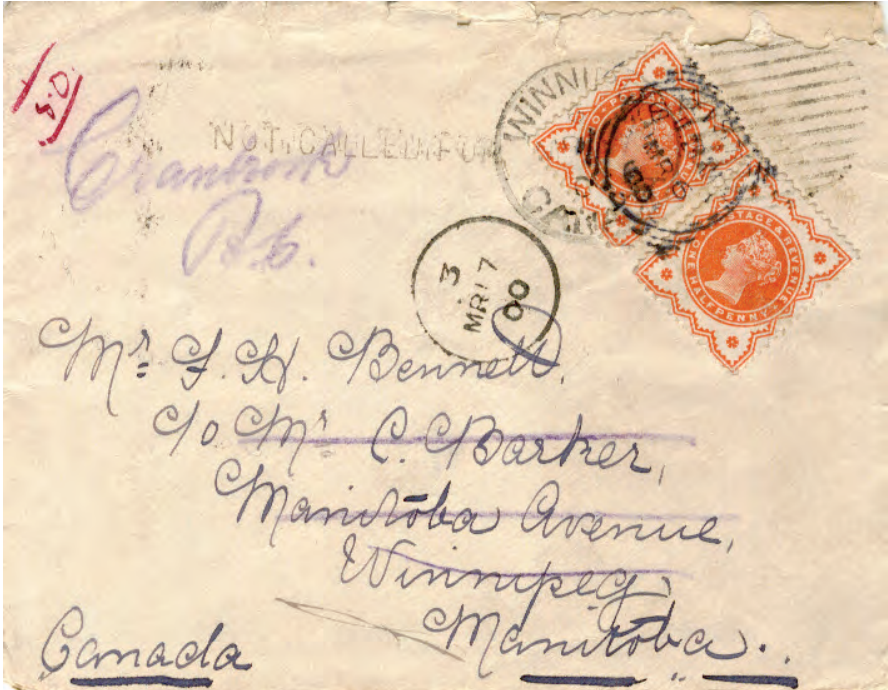 NOT CALLED FOR
Cranbrook
B.C.
WINNIPEG
CAN
3
MR 17
00
POSTAGE & REVENUE
ONE HALFPENNY
Mr. F. H. Bennett,
c/o Mr. C. Barker,
Manitoba Avenue,
Winnipeg
Manitoba.
Canada